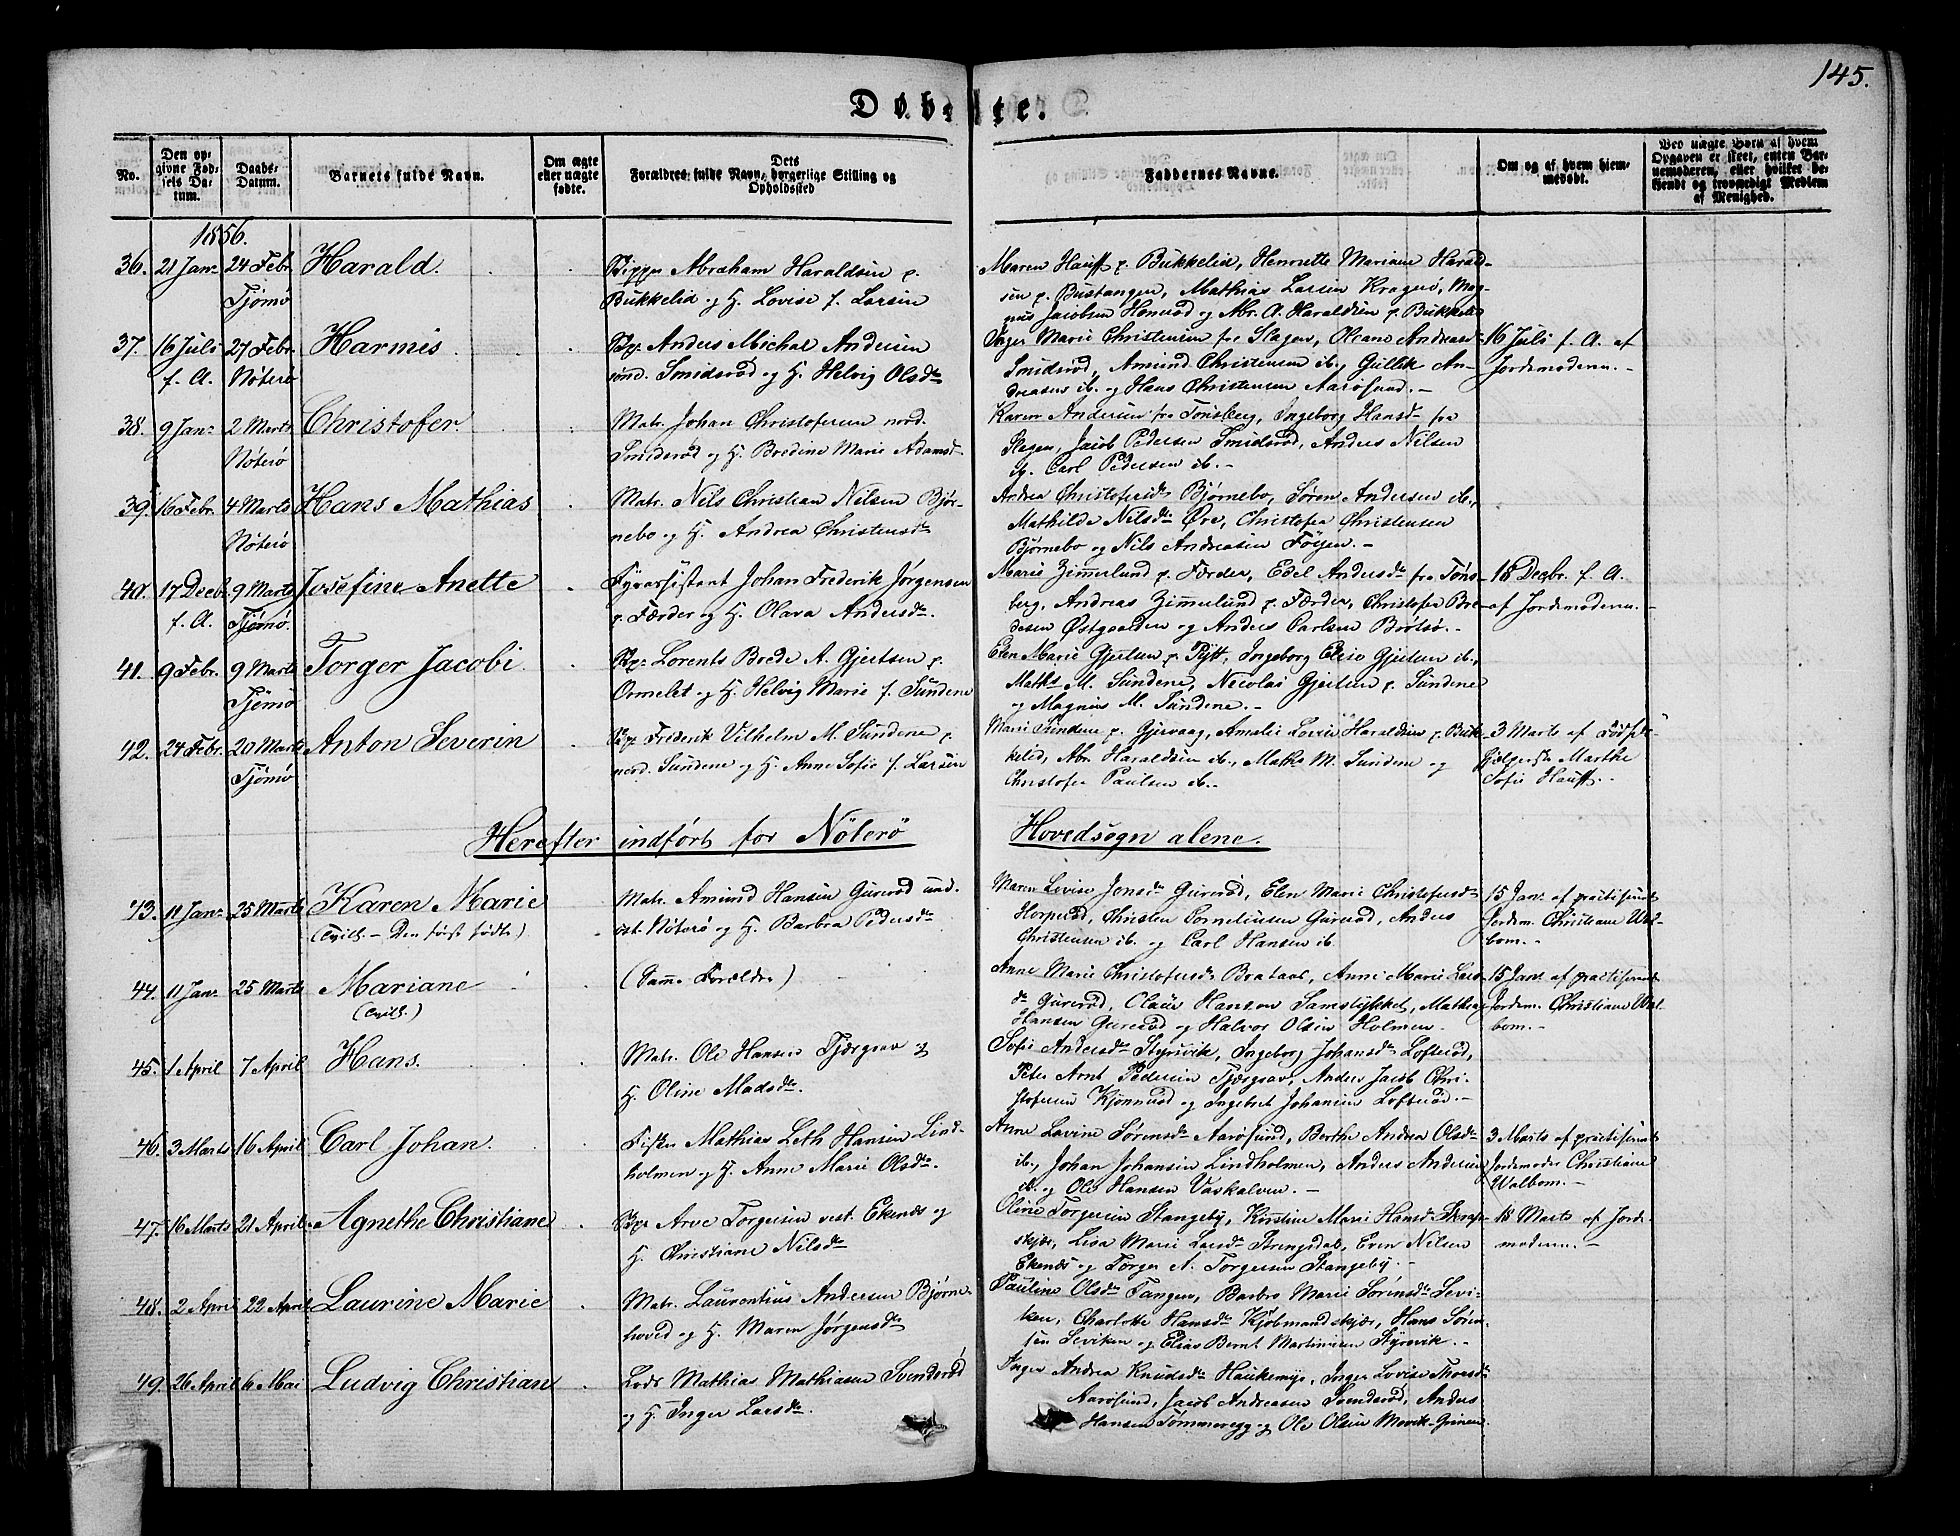 145.
Døbte.
No.
Den opgivne Fødsels Datum.
Daabs-Datum.
Barnets fulde Navn.
Om ægte eller uægte fødte.
Forældres fulde Navn, borgerlige Stilling og Dets Opholdssted
Faddernes Navne.
Om og af hvem hjemmedøbt.
Ved uægte Børn af hvem Opgaven er skeet, enten Barnemoderen, eller hvilket bekjendt og troværdigt Medlem af Menighed.
1856.
36. 21 Jan. 24 Febr. Harald.
Tjømø
Abraham Haraldsen p.
Bukkelid og H. Lovise f. Larsen
Maren Hauff p. Bukkelid, Henrette Mariane Harald-
sen p. Bustangen, Mathias Larsen Kragerø, Mag-
nus Jacobsen Honerød og Abr. A. Haraldsen p. Bukkelid
37. 16 Juli 27 Febr. Harmis
f. A. Nøterø
Anders Michal Andersen
sønd. Smidsrød og H. Helvig Olsdr
Inger Marie Christensen fra Slagen, Oleane Andreas-
Smidsrød, Amund Christensen ib., Gullik An-
dreasen ib. og Hans Christensen Aarøsund.-
16 Juli f. A. af
Jordemoderen.-
38. 9 Jan. 2 Marts Christofer.
Nøterø
Matr. Johan Christofersen nord.
Smidsrød og H. Bredine Marie Adamsd-
Karen Andersen fra Tønsberg, Ingeborg Hansd- fra
Slagen, Jacob Pedersen Smidsrød, Anders Nilsen
ib. Carl Pedersen ib.-
39. 16 Febr. 4 Marts Hans Mathias
Nøterø
Matr. Nils Christian Nilsen Bjør-
nebo og H. Andrea Christensdr
Andrea Christofersdr Bjørnebo, Søren Andersen ib.,
Mathilde Nilsdr Øre, Christofer Christensen
Bjørnebo og Nils Andreasen Føyen.-
40. 17 Decbr. 9 Marts Josefine Anette
f. A. Tjømø.
Fyrassistant Johan Frederik Jørgensen
p. Færder og H. Olava Andersdr.
Marie Zimmerlund p. Færder, Edel Andersdr fra Tøns-
berg, Andreas Zimmerlund p. Færder, Christofer Bre-
desen Østgaarden og Anders Carlsen Brøtsø.-
18 Decbr. f. A.
af Jordemoderen.-
41. 9 Febr. 9 Marts Torger Jacobi
Tjømø
Lorents Brede A. Gjertsen p.
Ormelet og H. Helvig Marie f. Sundene
Elen Marie Gjertsen p. Pytt, Ingeborg Elise Gjertsen ib.,
Maths M. Sundene, Nicolai Gjertsen p. Sundene
og Magnus M. Sundene.-
42. 24 Febr. 20 Marts Anton Severin
Tjømø
Frederik Vilhelm M. Sundene p.
nord. Sundene og H. Anne Sofie f. Larsen
Marie Sundene p. Gjervaag, Amalie Lovise Haraldsen p. Buk-
kelid, Abr. Haraldsen ib., Maths M. Sundene og
Christofer Paulsen ib.-
3 Marts af
Marthe
Sofie Hauff.-
Herefter indført for Nøterø Hovedsogn alene.
43. 11 Jan. 25 Marts Karen Marie
(Tvill. - Den først fødte)
Matr. Amund Hansen Gurerød und.
øst. Nøterø og H. Barbra Pedersdr
Maren Lovise Jensdr Gurerød, Elen Marie Christofersdr
Horperød, Christen Corneliusen Gurerød, Anders
Christensen ib. og Carl Hansen ib.
15 Jan. af practiserende
Jordem. Christiane Wal-
bom.-
44. 11 Jan. 25 Marts Mariane
(Tvill.)
(Samme Forældre)
Anne Marie Christofersdr Brataas, Anne Marie Lars-
dr Gurerød, Olaus Hansen Samstykket, Mathias
Hansen Gurerød og Halvor Olsen Holmen.
15 Jan. af practiserende
Jordem. Christiane Wal-
bom.-
45. 1 April 7 April Hans.
Matr. Ole Hansen Tjærgrav og
H. Oline Madsdr.
Sofie Andersdr Styrsvik, Ingeborg Johansdr Lofterød,
Peter Arnt Pedersen Tjærgrav, Anders Jacob Chri-
stofersen Kjønnerød og Ingebret Johansen Lofterød.-
46. 3 Marts 16 April Carl Johan.
Fisker Mathias Leth Hansen Lind-
holmen og H. Anne Marie Olsdr.
Anne Lavine Sørensdr Aarøsund, Berthe Andrea Olsdr
ib., Johan Johansen Lindholmen, Anders Andersen
ib. og Ole Hansen Vaskalven.-
3 Marts af practiserende
Jordemoder Christiane
Walbom.-
47. 16 Marts 21 April Agnethe Christiane
Arve Torgersen vest. Ekenæs og
H. Christiane Nilsdr
Oline Torgersen Stangeby, Kirstine Marie Hansd-
skjær, Lisa Marie Larsdr Strengsdal, Even Nilsen
Ekenæs og Torger N. Torgersen Stangeby.-
18 Marts af Jorde-
moderen.-
48. 2 April 22 April Laurine Marie
Matr. Laurentius Andersen Bjørne-
hoved og H. Maren Jørgensdr
Pauline Olsdr Tangen, Barbro Marie Sørensdr Sevi-
ken, Charlotte Hansdr Kjøbmandskjær, Hans Søren-
sen Seviken og Elias Bernt Martinisen Styrsvik.-
49. 26 April 6 Mai Ludvig Christian
Lods Mathias Mathiasen Svendsrød
og H. Inger Larsdr.
Inger Andrea Knudsdr Haukemyr, Inger Lovise Thorsdr
Aarøsund, Jacob Andreasen Svendsrød, Anders
Hansen Tømmeregg og Ole Olsen Meevik-Grinen.